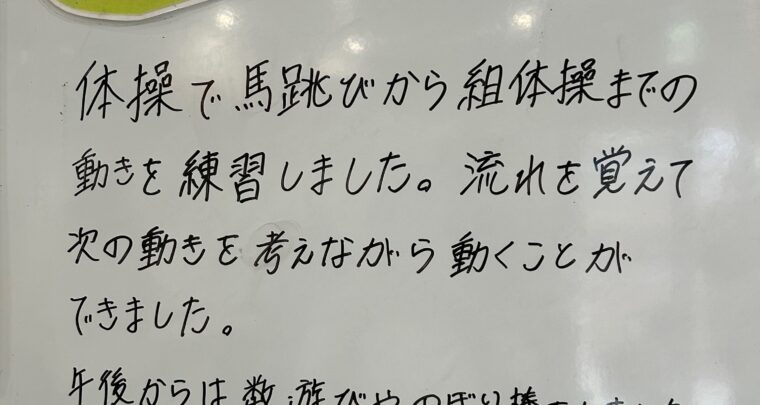 体操で馬跳びから組体操までの
動きを練習しました。流れを覚えて
次の動きを考えながら動くことが
できました。
午後からは数遊びやのぼり棒をしました